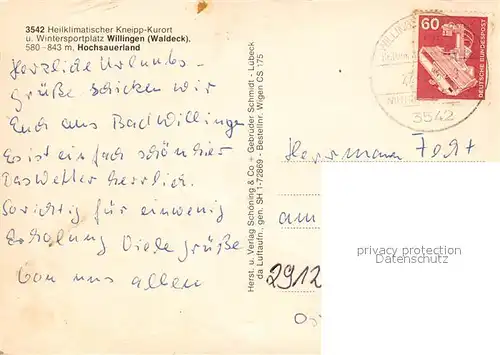 3542 Heilklimatischer Kneipp-Kurort
u. Wintersportplatz Willingen (Waldeck).
580-843 m, Hochsauerland
Herzliche Urlaubs-
grüße schicken wir
Euch aus Bad Willingen
Es ist einfach schön hier
Das Wetter herrlich.
So richtig für einwenig
Erholung Viele grüße
von uns allen
Herst. u. Verlag Schöning & Co + Gebrüder Schmidt - Lübeck
da Luftaufn., gen. SH 1-72869 - Bestellnr. Wigen CS 175
60
DEUTSCHE BUNDESPOST
3542
Herrmann
am
2912
privacy protection
Datenschutz